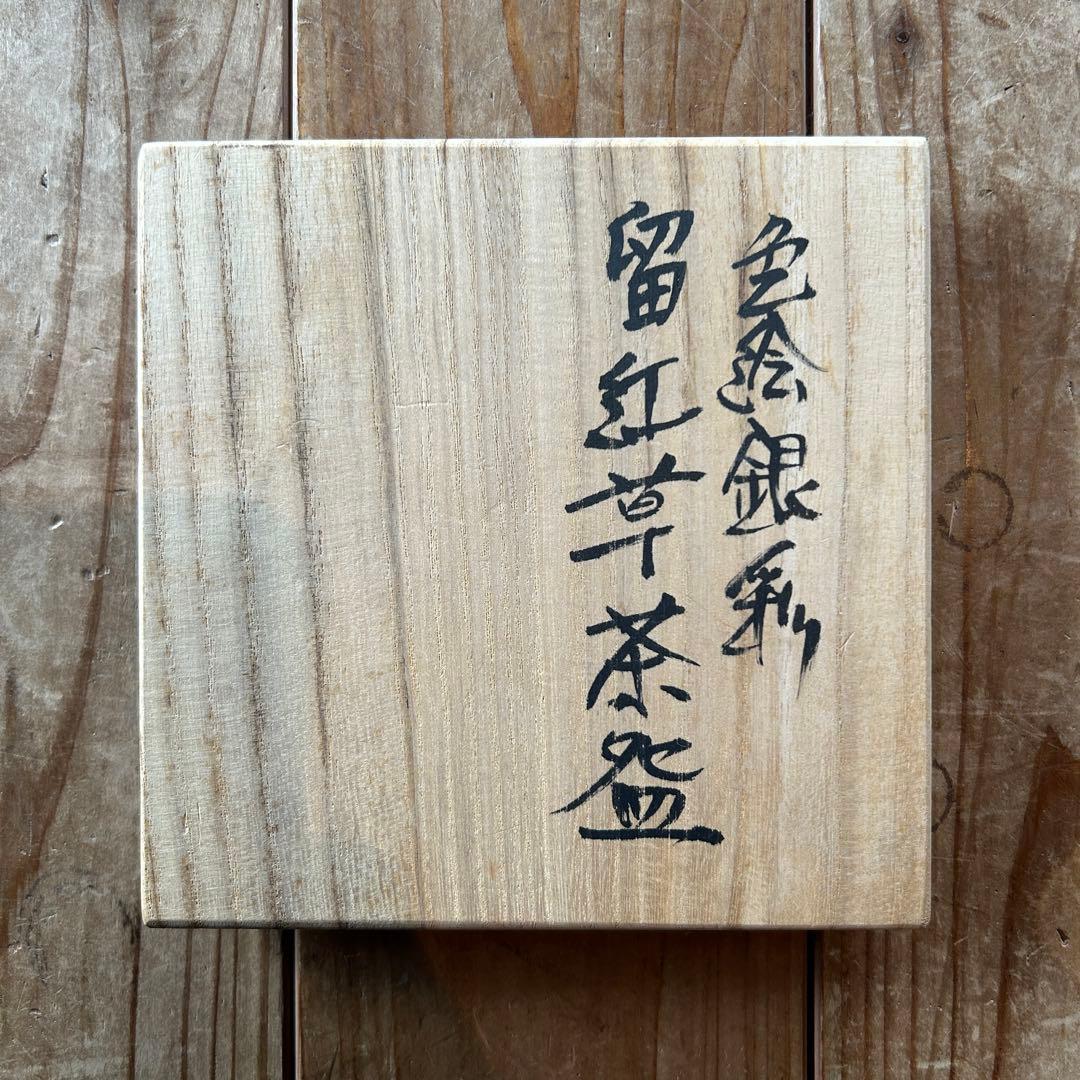 色絵銀彩
留紅草茶盌